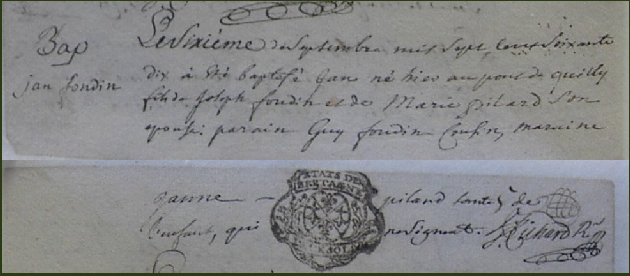 Bap
jan foudin
Le Sixiéme de Septembre mil Sept Cent Soixante
dix à été baptisé Jan né hier au pont de quilly
fils de Joseph foudin et de Marie pilard Son
epouse parain Guy foudin Cousin, maraine
janne pilard tante de
l'enfant, qui ne signent.
ETATS DE
BRETAGNE